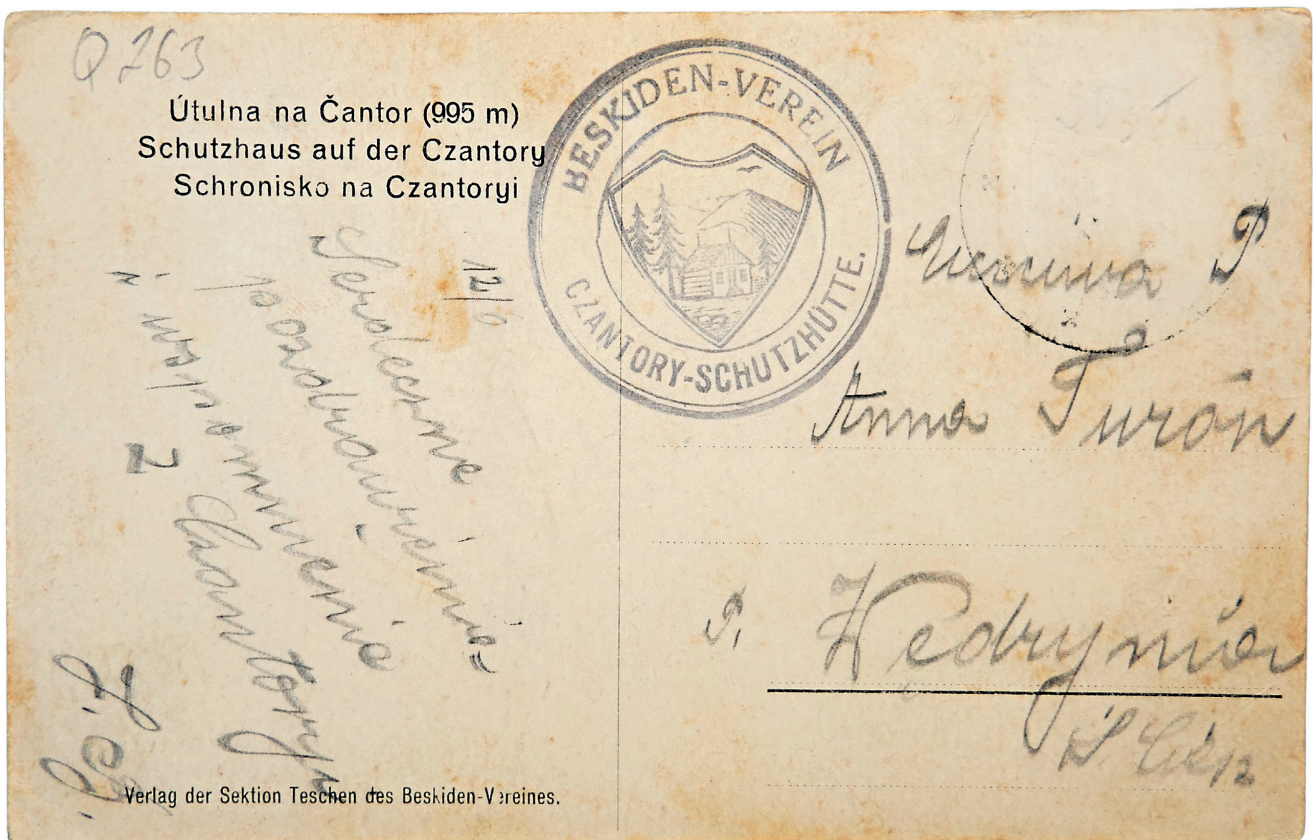 Q 263
Útulna na Čantor (995 m)
Schutzhaus auf der Czantory
Schronisko na Czantoryi
BESKIDEN-VEREIN
CZANTORY-SCHUTZHÜTTE.
12/6
Serdeczne
pozdrowienie
i wspomnienie
z Czantoryi
P
Anna Turoń
P. Wędrynia
Verlag der Sektion Teschen des Beskiden-Vereines.